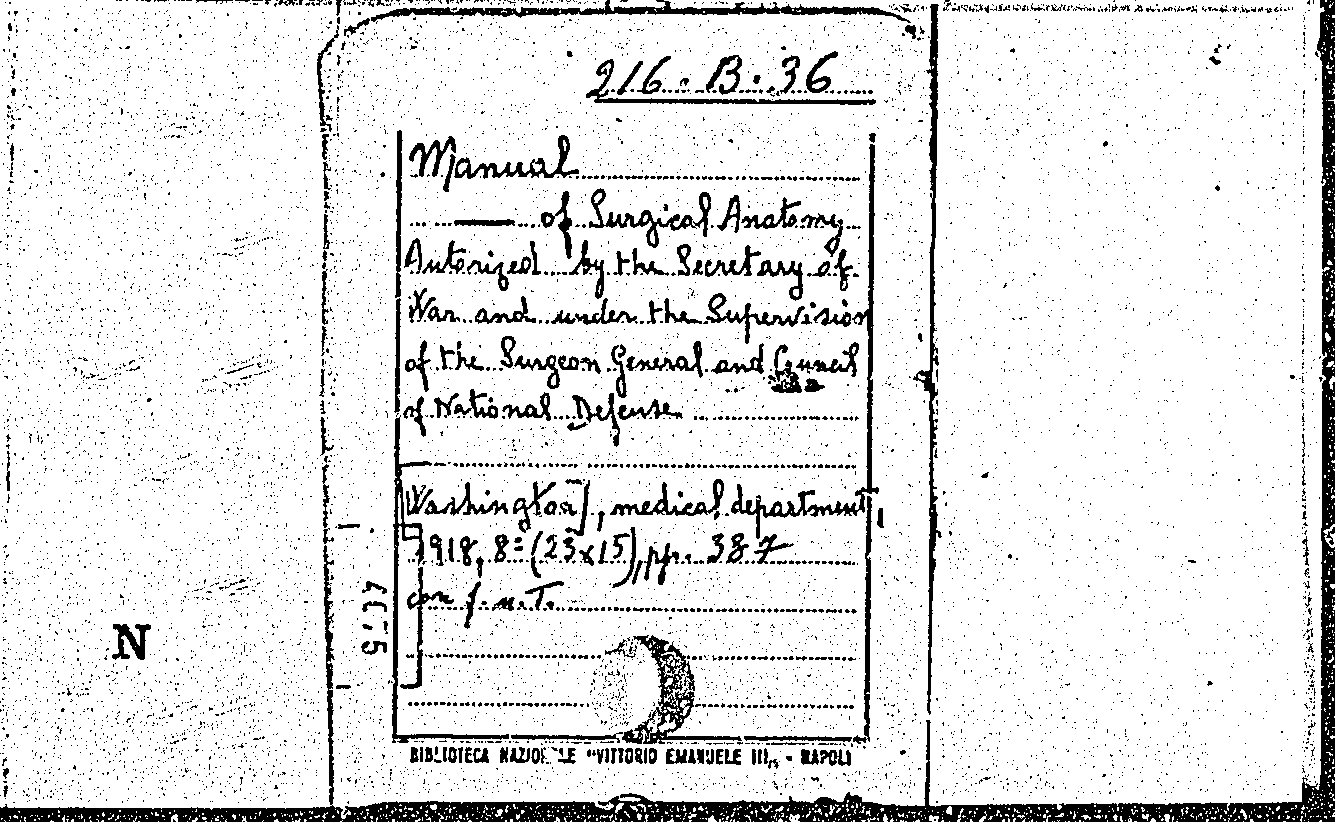 216.B.36
Manual
— of Surgical Anatomy
Autorized by the Secretary of
War and under the Supervision
of the Surgeon General and Council
of National Defense
[Washington], medical department,
1918, 8º (23x15), pp. 387
con f. n. T.
N
BIBLIOTECA NAZIONALE "VITTORIO EMANUELE III" - NAPOLI